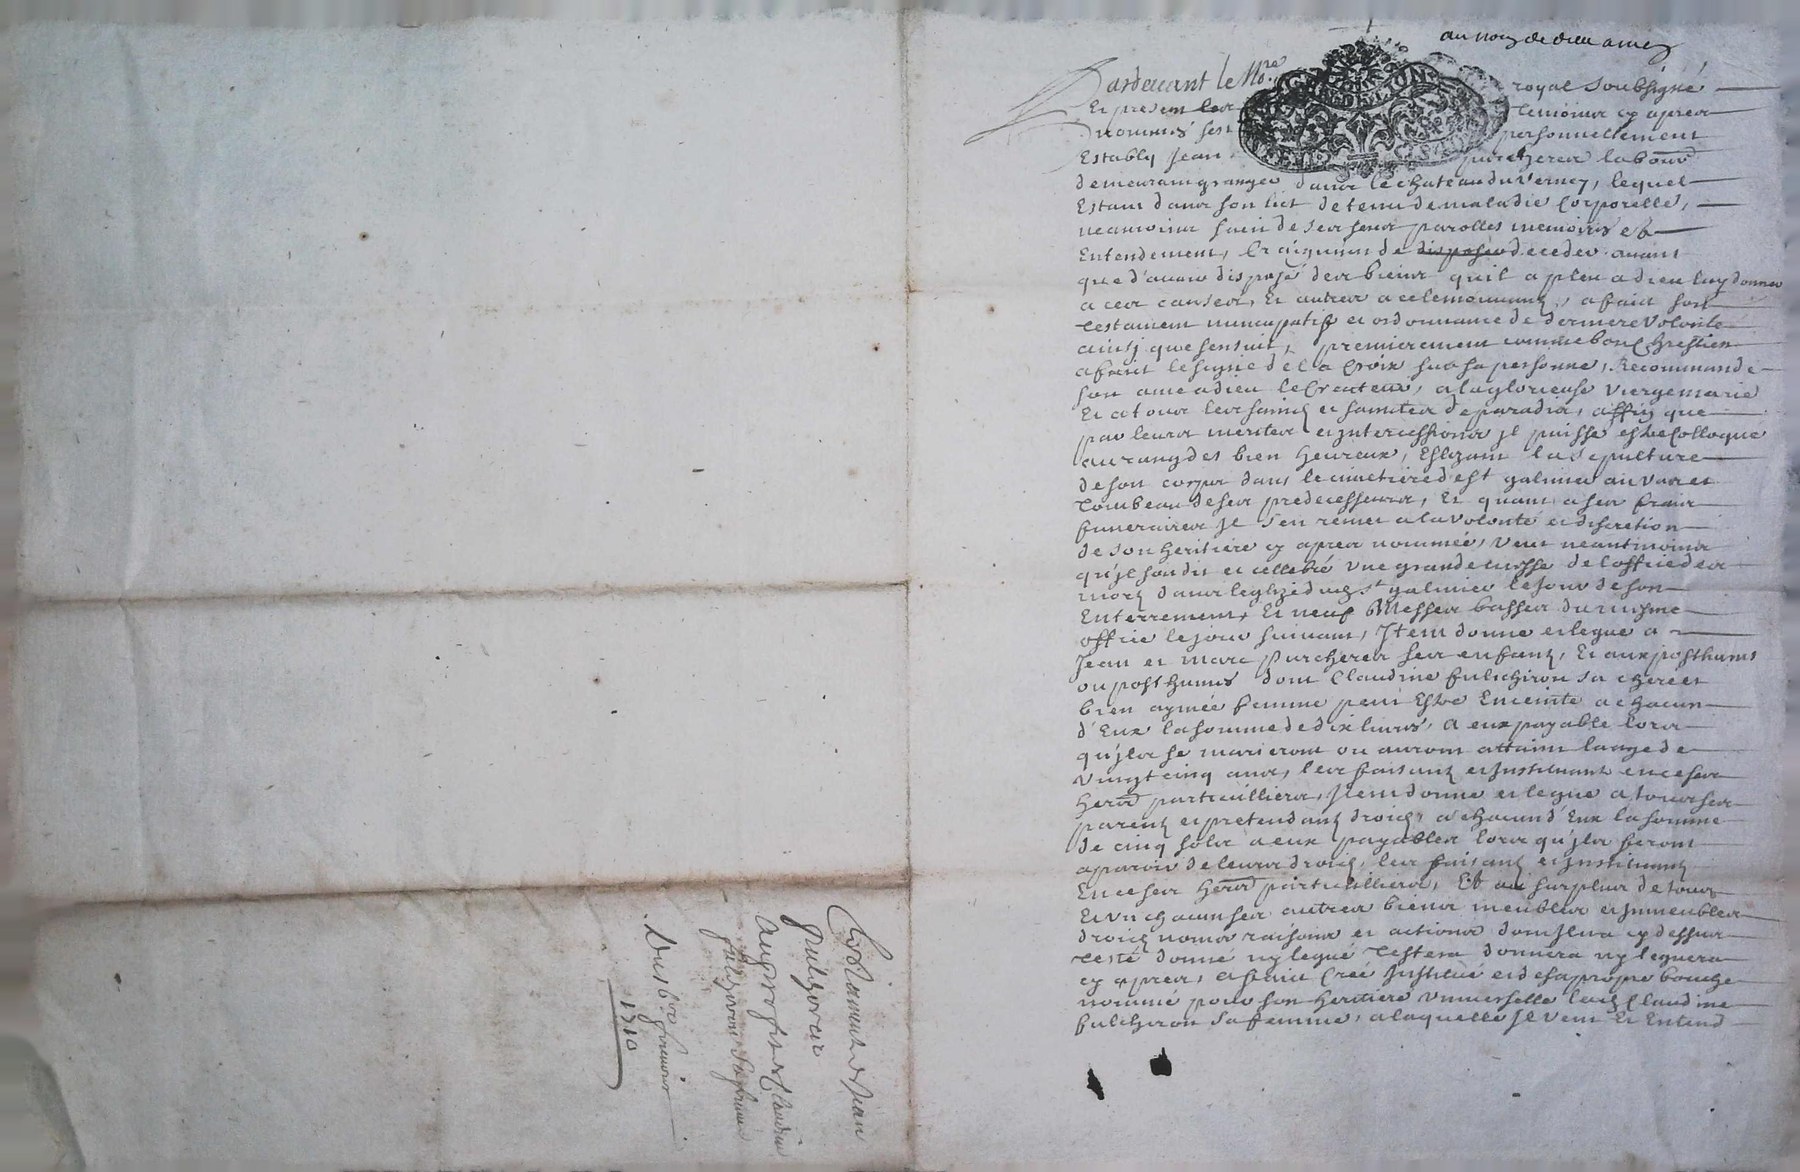 au nom de dieu amen
Pardevant le No.re royal soubsigné
Et present les temoins cy apres
nommés sest personnellement
Estably Jean purcherer labour
demeurant granger dans le chateau du verney, lequel
Estant dans son lict detenu de maladie Corporelle,
neanmoins sain de ses sens parolles memoires et
Entendement, Craignant de disposer deceder avant
que d'avoir disposé des biens quil a pleu a dieu luy donner
a ces causes, Et autres a ce le mouvants, a faict son
testament nuncupatif et ordonnance de derniere volonte
ainsj que sensuit, premierement comme bon Chrestien
a faict le signe de la Croix sur sa personne, Recommande
son ame a dieu le Createur, a la glorieuse vierge marie
Et a tous les saincts et sainctes de paradis, affin que
par leurs merites et Intercessions Jl puisse estre Colloqué
au rang des bien heureux, Eslizant la sepulture
de son corps dans le cimetiere de st galmier au vas et
tombeau de ses predecesseurs, Et quant a ses fraix
funeraires Jl s'en remet a la volonté et discretion
de son heritiere cy apres nommée, veut neantmoins
qu'jl soit dit et cellebré une grande messe de l'office des
morts dans leglize du st galmier le jour de son
Enterrement, Et neuf Messes basses du mesme
office le jour suivant, Jtem donne et legue a
Jean et marc purcherer ses enfants, Et aux posthumes
ou posthumes dont Claudine fulchiron sa chere et
bien aymée femme peut Estre Enceinte a chacun
d'Eux la somme de dix livres, a eux payable lors
qu'jls se marieront ou auront attaint laage de
vingt cinq ans, les faisant et Instituant en ce ses
herers particulliers, Jtem donne et legue a tous ses
parents et pretendants droict, a chacun d'Eux la somme
de cinq sols a eux payables lors qu'jls feront
aparoir de leurs droicts, les faisant et Instituant
En ce ses herers particulliers, Et au surplus de tous
Et un chacun ses autres biens meubles et Immeubles
droicts noms raisons et actions dont Jl na cy dessus
testé donné ny legué testera donnera ny leguera
cy apres, a faict Creé Institué et de sa propre bouche
nommé pour son heritiere universelle lad. Claudine
fulcheron sa femme, a laquelle Jl veut Et Entend
Testament de Jean
Au proffit de Claudine
sa femme
1710